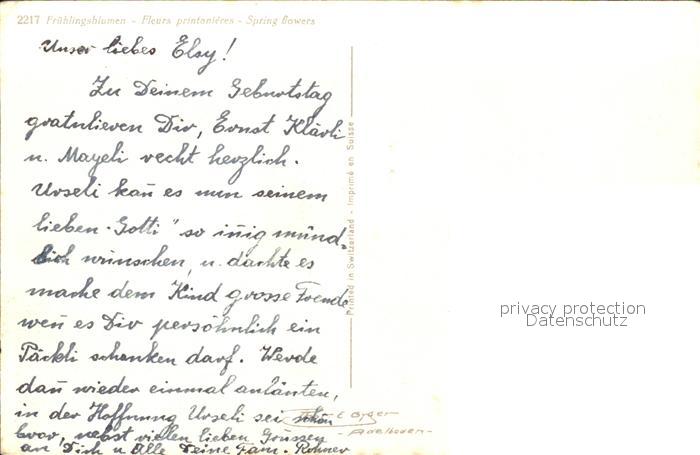 2217 Frühlingsblumen - Fleurs printanières - Spring flowers
Unser liebes Elsy!
Zu Deinem Geburtstag
gratulieren Dir, Ernst Klärli
u. Mayeli recht herzlich.
Urseli kañ es nun seinem
lieben "Gotti" so iñig münd-
lich wünschen, u. dachte es
mache dem Kind grosse Freude
weñ es Dir persöhnlich ein
Päckli schenken darf. Werde
dañ wieder einmal anläuten,
in der Hoffnung Urseli sei schön
brav, nebst vielen lieben Grüssen
an Dich u. Alle Deine Fam. Rohner
Printed in Switzerland - Imprimé en Suisse
- Adelboden -
privacy protection
Datenschutz